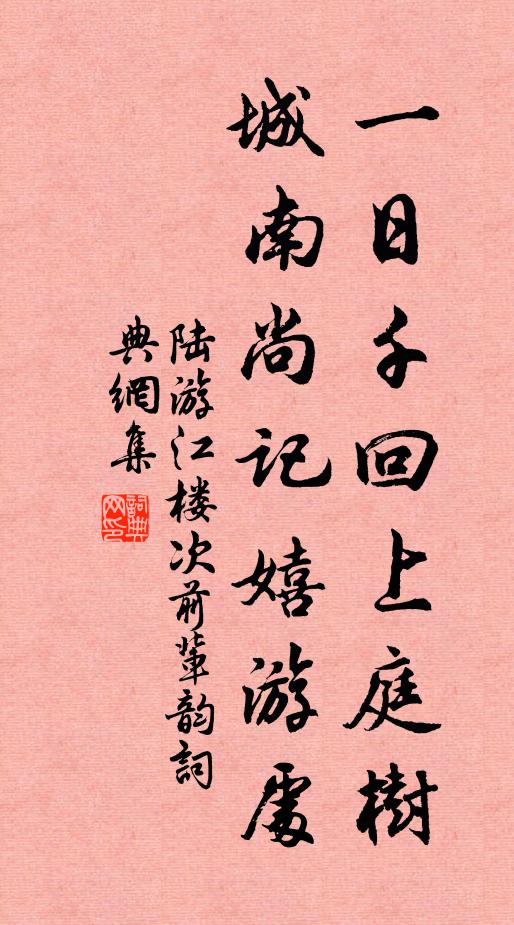 一日千回上庭樹
城南尚记嬉游處
陆游江楼次前輩韵詞
典網集
詞典网印